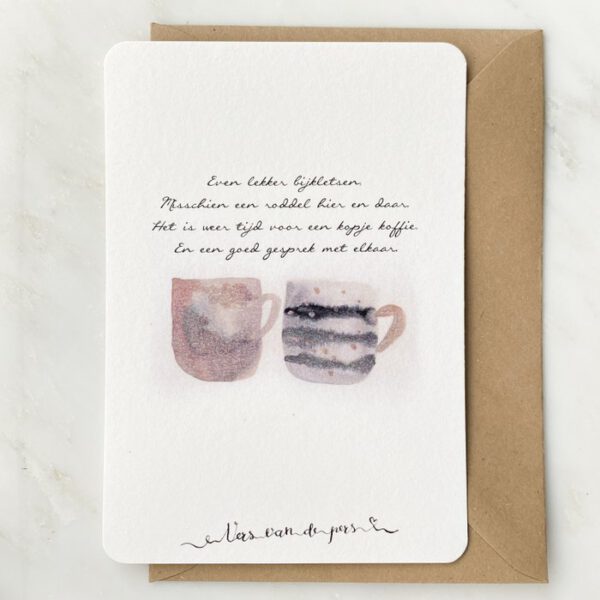 Even lekker bijkletsen.
Misschien een roddel hier en daar.
Het is weer tijd voor een kopje koffie.
En een goed gesprek met elkaar.
Vers van de pers